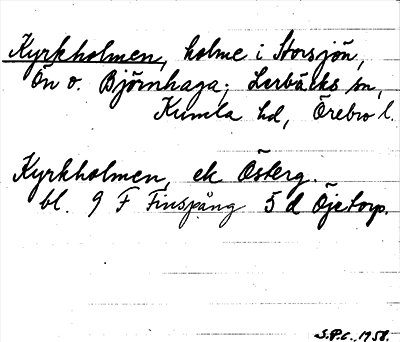 Kyrkholmen, holme i Storsjön,
Ön o. Björnhaga; Lerbäcks sn,
Kumla hd, Örebro l.
Kyrkholmen, ek Österg.
bl. 9 F Finspång 5 d Öjetorp.
S.P.C., 1958.